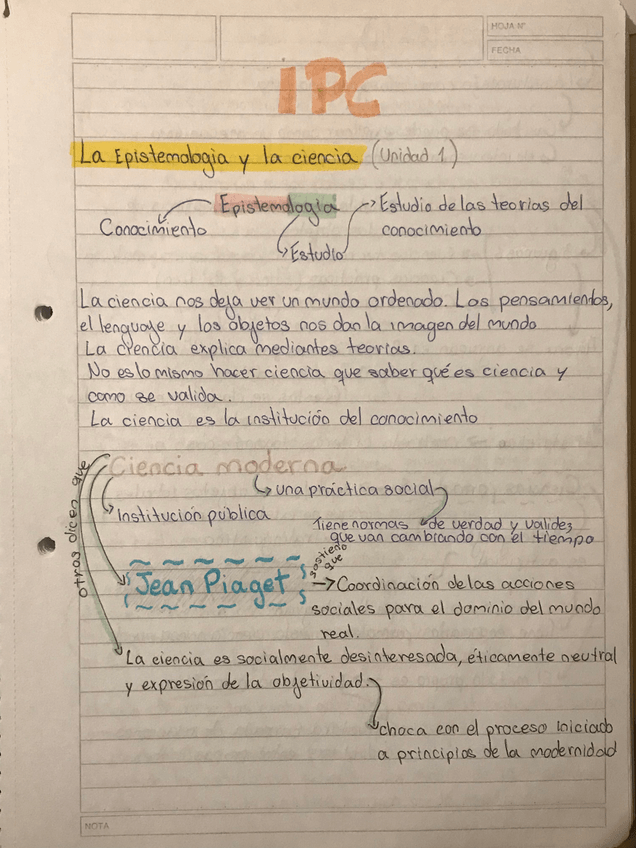 HOJA N°
FECHA
IPC
La Epistemologia y la ciencia (Unidad 1)
Epistemología
Conocimiento
Estudio
Estudio de las teorías del
conocimiento
La ciencia nos deja ver un mundo ordenado. Los pensamientos,
el lenguaje y los objetos nos dan la imagen del mundo
La ciencia explica mediantes teorías.
No es lo mismo hacer ciencia que saber qué es ciencia y
como se valida.
La ciencia es la institución del conocimiento
Ciencia moderna
una práctica social
Institución pública
Tiene normas de verdad y validez
que van cambiando con el tiempo
otros dicen que
Jean Piaget
sostiene
que
Coordinación de las acciones
sociales para el dominio del mundo
real.
La ciencia es socialmente desinteresada, éticamente neutral
y expresión de la objetividad.
choca con el proceso iniciado
a principios de la modernidad
NOTA